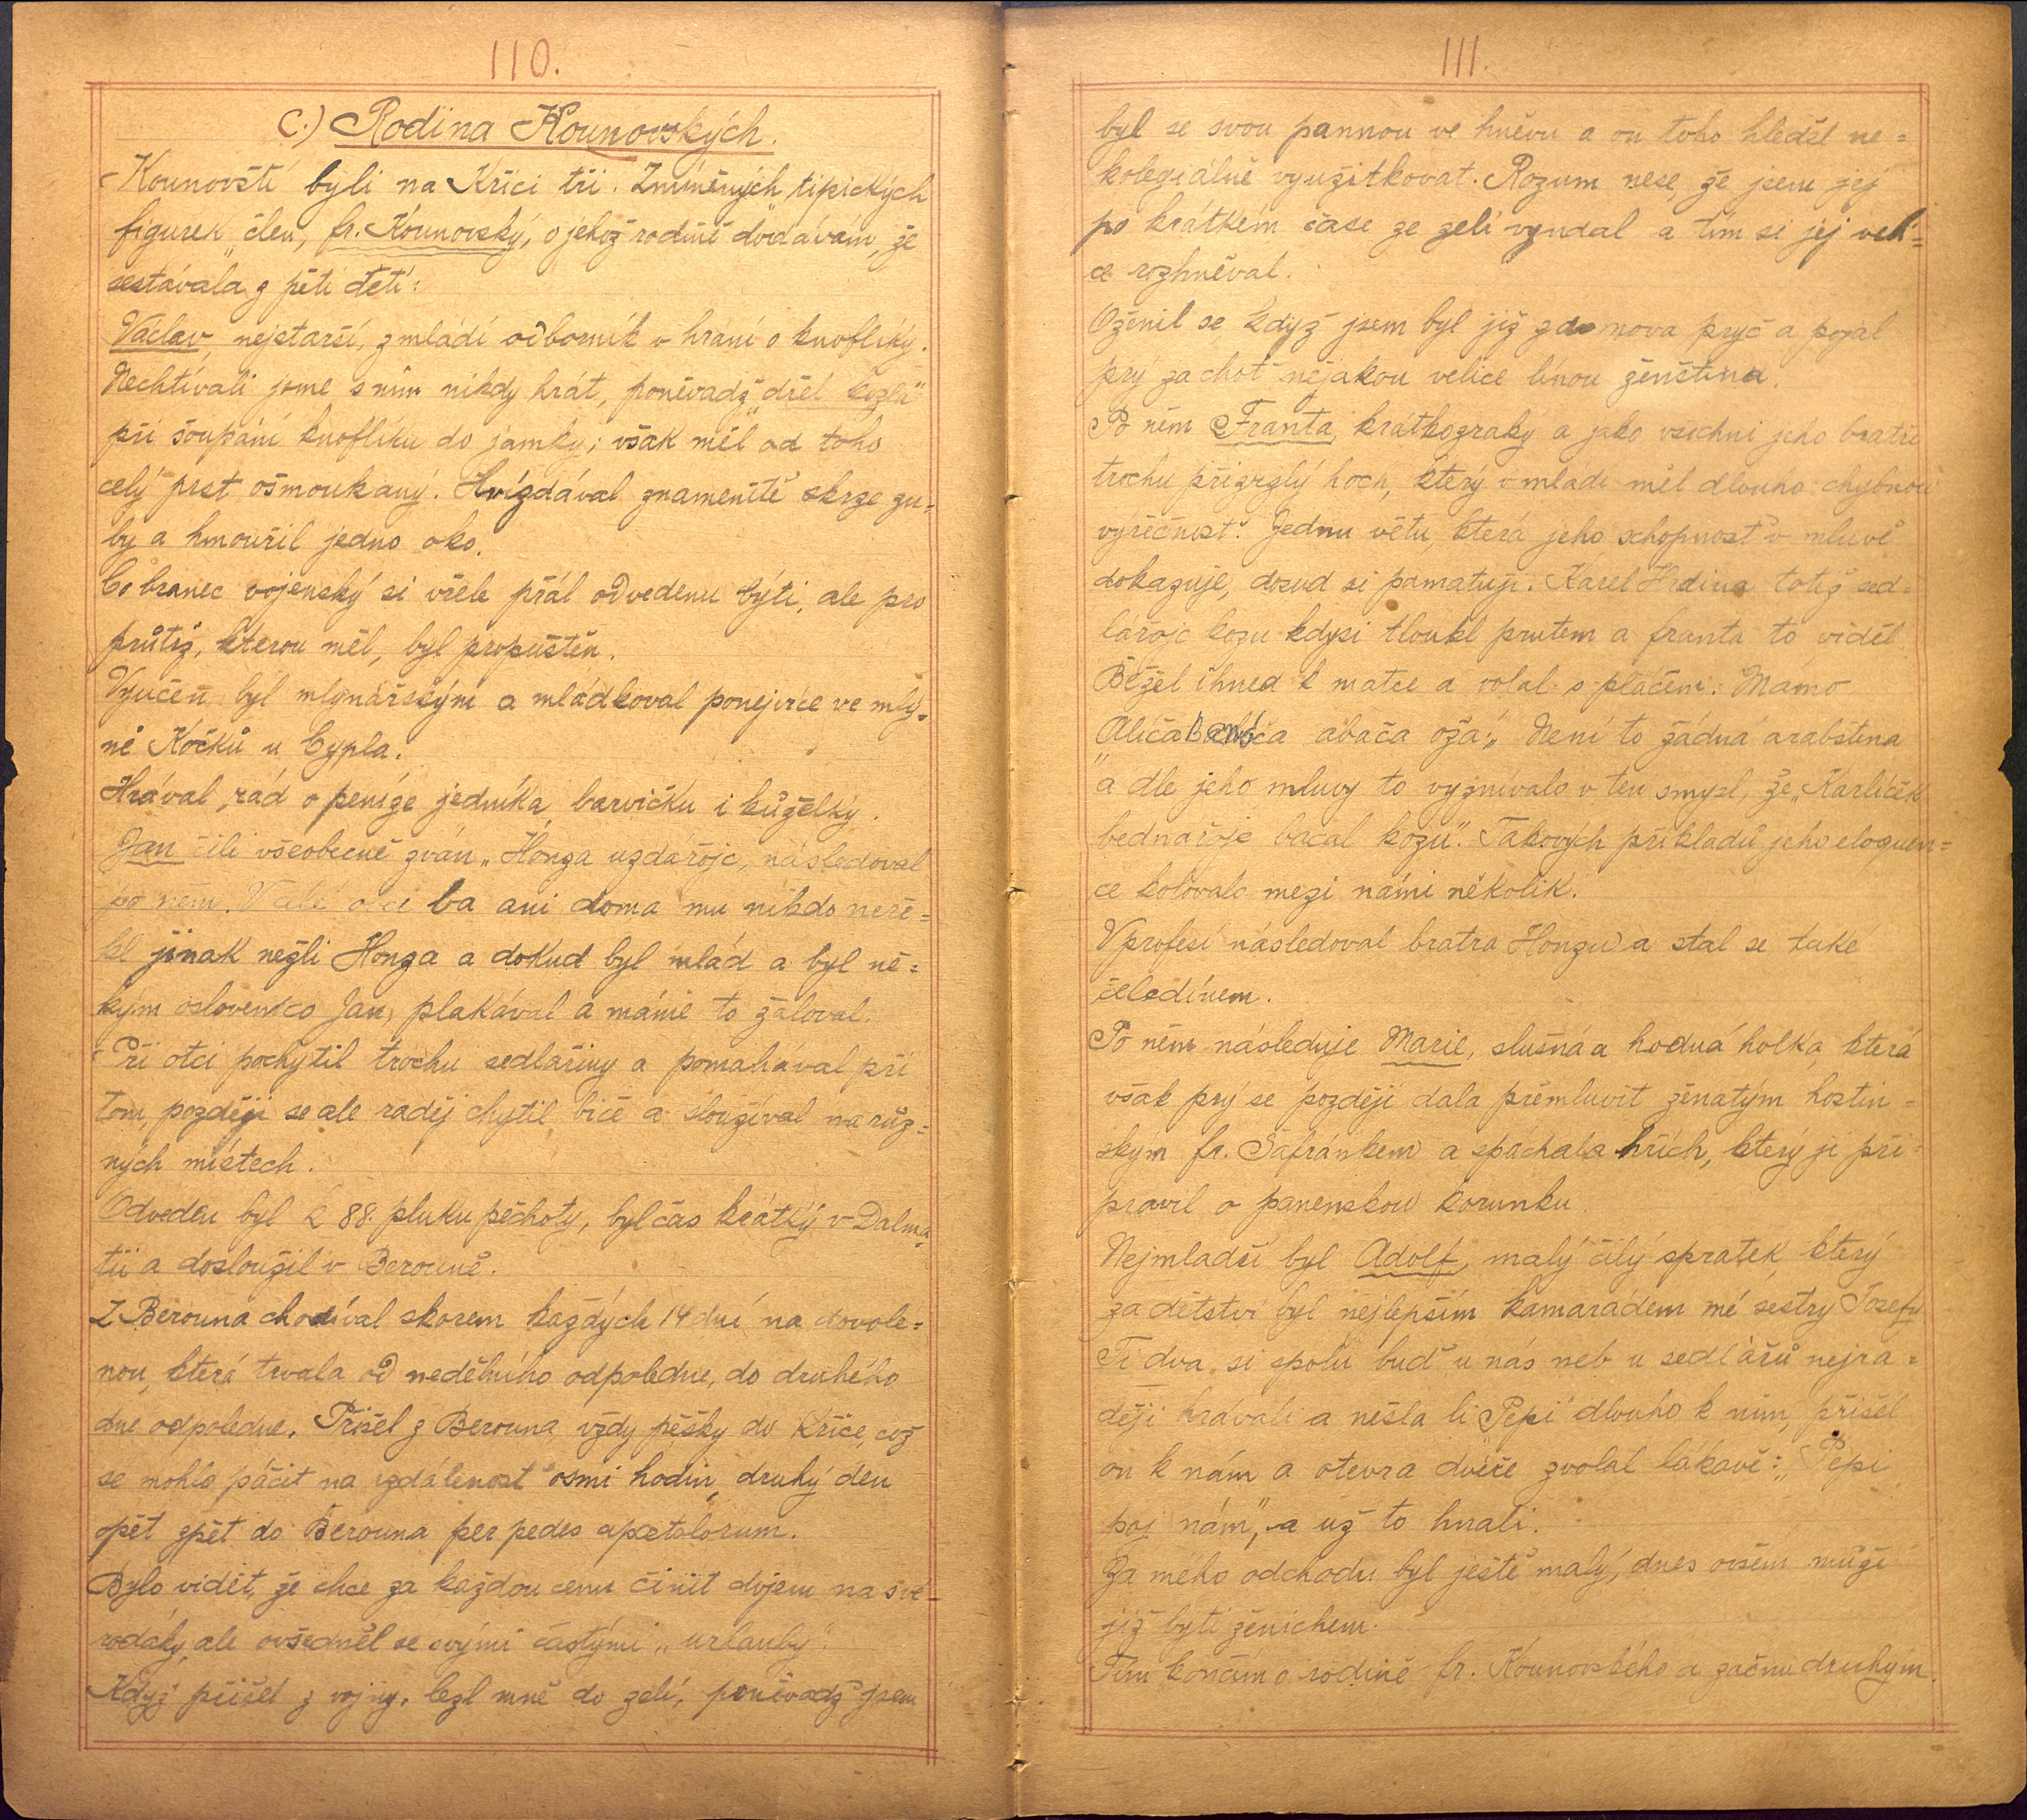 110.
C.) Rodina Kounovských.
Kounovští byli na Kříci tři. Zmíněných „tipických
figurek" člen, fr. Kounovský, o jehož rodině dodávám, že
sestávala z pěti dětí:
Václav, nejstarší, z mládí odborník v hraní o knoflíky.
Nechtívali jsme s ním nikdy hrát, poněvadž „dřel kozla"
při šoupání knoflíku do jamky; však měl od toho
celý prst ošmoukaný. Hvízdával znamenitě skrze zu=
by a hmouřil jedno oko.
Co branec vojenský si vřele přál odvedenu býti, ale pro
průtrž, kterou měl, byl propuštěn.
Vyučen byl mlynářským a mládkoval ponejvíce ve mlý=
ně Kočků u Cypla.
Hrával rád o peníze jedníka, barvičku i kůželky.
Jan čili všeobecně zván „Honza uzdařojc, následoval
po něm. V celé obci ba ani doma mu nikdo neře=
kl jinak nežli Honza a dokud byl mlád a byl ně=
kým osloven co Jan, plakával a mámě to žaloval.
Při otci pochytil trochu sedlařiny a pomahával při
tom, později se ale raděj chytil biče a sloužíval na růz=
ných místech.
Odveden byl k 88. pluku pěchoty, byl čas krátký v Dalma=
tii a dosloužil v Berouně.
Z Berouna chodíval skorem každých 14 dní na dovole=
nou, která trvala od nedělního odpoledne, do druhého
dne odpoledne. Přišel z Berouna vždy pěšky do Kříce, což
se mohlo páčit na vzdálenost osmi hodin, druhý den
opět zpět do Berouna per pedes apostolorum.
Bylo vidět, že chce za každou cenu činit dojem na své
rodáky, ale ovšedněl se svými častými „urlauby".
Když přišel z vojny, lezl mně do zelí, poněvadž jsem
111.
byl se svou pannou ve hněvu a on toho hleděl ne=
kolegiálně využitkovat. Rozum nese, že jsem jej
po krátkém čase ze zelí vyndal a tím si jej veli=
ce rozhněval.
Oženil se, když jsem byl již z domova pryč a pojal
prý za choť nějakou velice línou ženštinu.
Po něm Franta, krátkozraký a jako všichni jeho bratři
trochu přizrzlý hoch, který v mládí měl dlouho chybnou
výřečnost. Jednu větu, která jeho schopnost v mluvě
dokazuje, dosud si pamatuji. Karel Hrdina totiž sed=
lářojc kozu kdysi tloukl prutem a franta to viděl.
Běžel ihned k matce a volal s pláčem: Mámo
„Aliča abača oža:" Není to žádná arabština
a dle jeho mluvy to vyznívalo v ten smysl, že „Karlíček
bednařoje bačal kozu". Takových příkladů jeho eloquen=
ce kolovalo mezi námi několik.
V profesí následoval bratra Honzu a stal se také
čeledínem.
Po něm následuje Marie, slušná a hodná holka, která
však prý se později dala přemluvit ženatým hostin=
ským fr. Šafránkem a spáchala hřích, který ji při=
pravil o panenskou korunku.
Nejmladší byl Adolf, malý čilý spratek, který
za dětství byl nejlepším kamarádem mé sestry Josefy
Ti dva si spolu buď u nás neb u sedlářů nejra=
ději hrávali a nešla li „Pepi" dlouho k nim, přišel
on k nám a otevra dvéře zvolal lákavě: „Pepi
poj nám", a už to hnali.
Za mého odchodu byl ještě malý, dnes ovšem může
již býti ženichem.
Tím končím o rodině fr. Kounovského a začnu druhým.